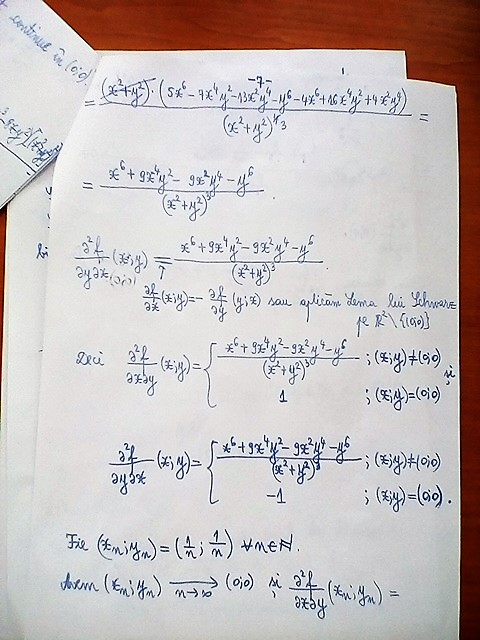 t continuă în (0;0)
-7-
= (x²+y²)·(5x⁶ - 7x⁴y² - 13x²y⁴ - y⁶ - 4x⁶ + 16x⁴y² + 4x²y⁴) / (x²+y²)⁴ ³ =
= x⁶ + 9x⁴y² - 9x²y⁴ - y⁶ / (x²+y²)³ .
∂²f/∂y∂x (x;y) = x⁶ + 9x⁴y² - 9x²y⁴ - y⁶ / (x²+y²)³
∂f/∂x (x;y) = - ∂f/∂y (y;x) sau aplicăm Lema lui Schwarz
pe ℝ² \ {(0;0)}
Deci ∂²f/∂x∂y (x;y) = { x⁶ + 9x⁴y² - 9x²y⁴ - y⁶ / (x²+y²)³ ; (x;y) ≠ (0;0) și
1 ; (x;y) = (0;0)
∂²f/∂y∂x (x;y) = { x⁶ + 9x⁴y² - 9x²y⁴ - y⁶ / (x²+y²)³ ; (x;y) ≠ (0;0)
-1 ; (x;y) = (0;0) .
Fie (xₙ;yₙ) = (1/n ; 1/n) ∀n∈ℕ.
Avem (xₙ;yₙ) ⟶ n→∞ (0;0) și ∂²f/∂x∂y (xₙ;yₙ) =